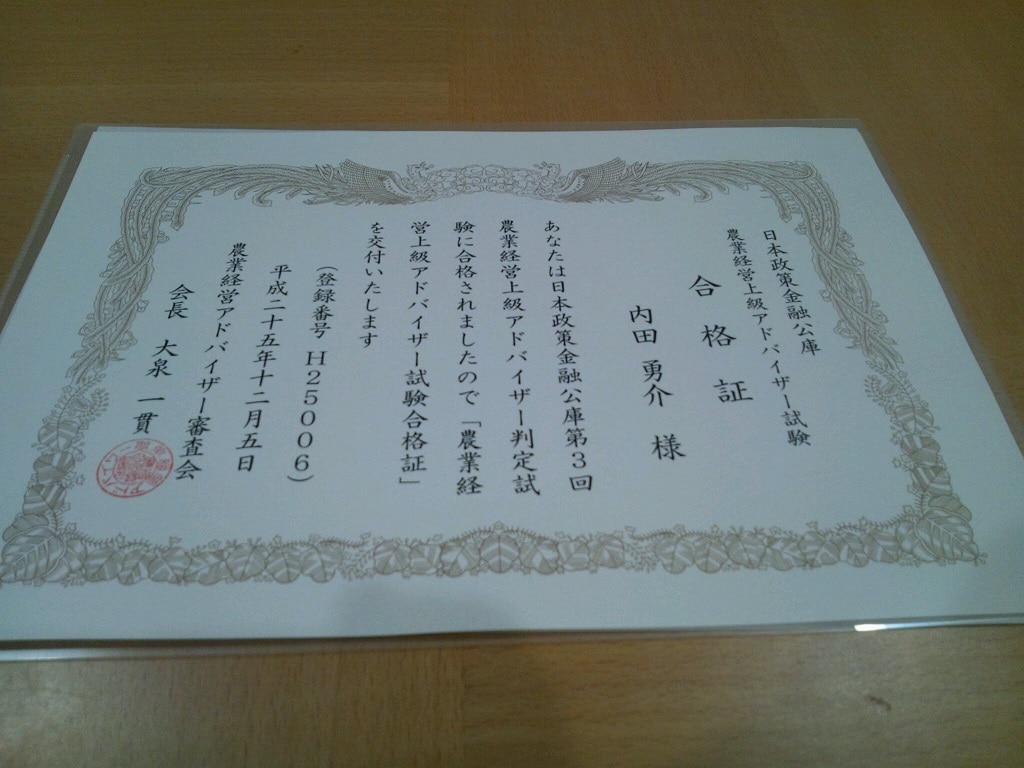 日本政策金融公庫
農業経営上級アドバイザー試験
合格証
内田 勇介 様
あなたは日本政策金融公庫第3回
農業経営上級アドバイザー判定試
験に合格されましたので「農業経
営上級アドバイザー試験合格証」
を交付いたします
(登録番号 H25006)
平成二十五年十二月五日
農業経営アドバイザー審査会
会長 大泉 一貫